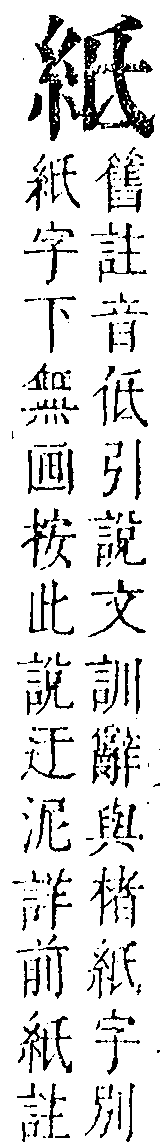 𥿄
舊註音低引說文訓辭與楮紙字別
紙字下無画按此說迂泥詳前紙註